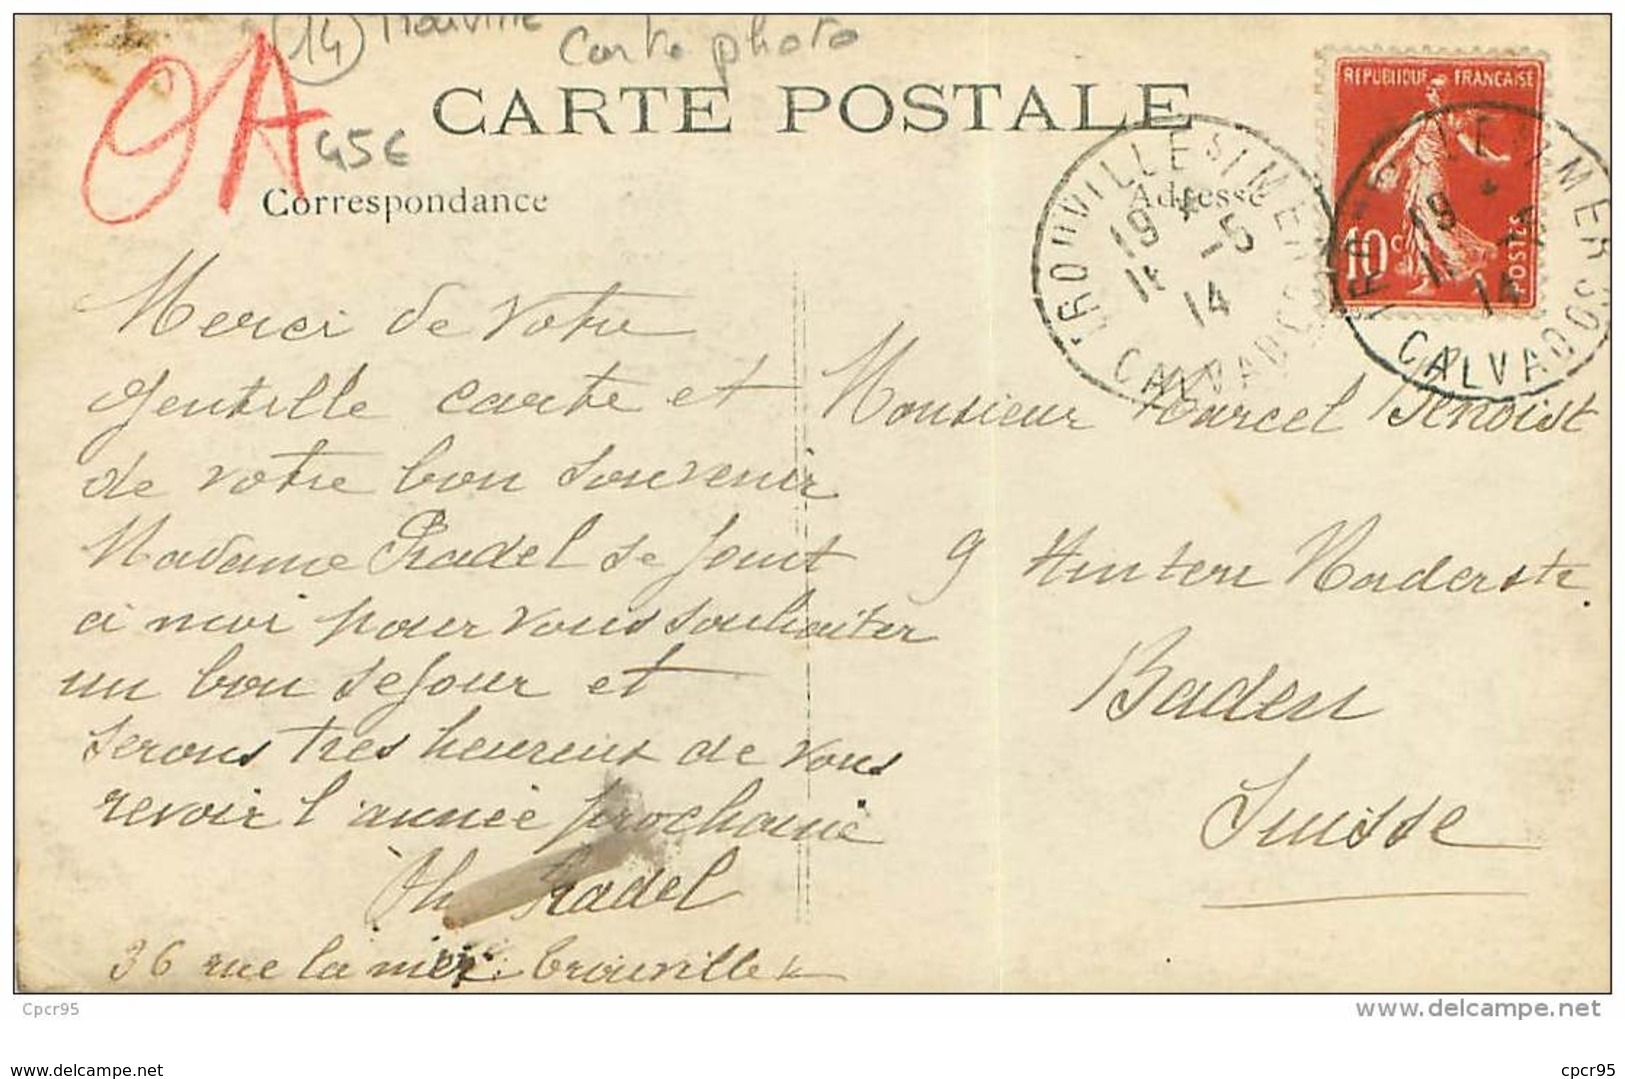 14 Trouville
Carte photo
OA
45€
CARTE POSTALE
Correspondance
Adresse
REPUBLIQUE FRANÇAISE
10c
POSTES
TROUVILLE S/ MER
19 -5
14
CALVADOS
TROUVILLE S/ MER
19
14
CALVADOS
Merci de votre
gentille carte et
de votre bon souvenir
Madame Pradel se joint
a moi pour vous souhaiter
un bon sejour et
serons tres heureux de vous
revoir l'année prochaine
Ch Pradel
36 rue la mer. trouville
Monsieur Marcel Benoist
9 Hintere
Baden
Suisse
Cpcr95
delcampe.net
www.delcampe.net
cpcr95